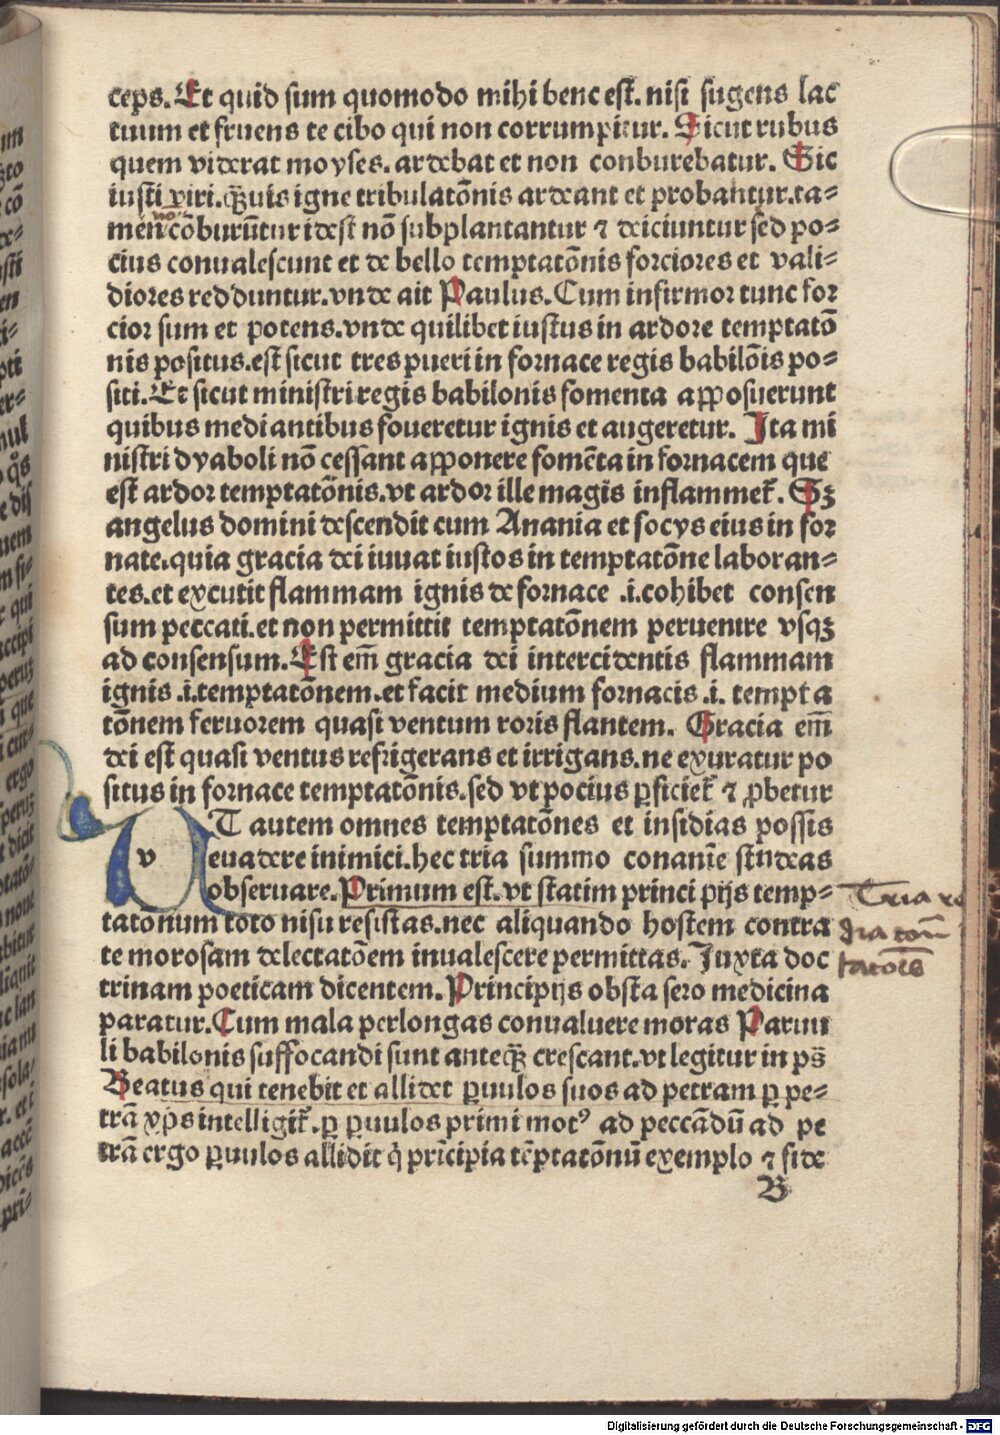 ceps. Et quid sum quomodo mihi bene est. nisi sugens lac
tuum et fruens te cibo qui non corrumpitur. Sicut rubus
quem viderat moyses. ardebat et non conburebatur. Sic
iusti viri. qꝫuis igne tribulatõnis ardeant et probantur. ta⸗
men nō cõburũtur idest nõ subplantantur ⁊ deiciuntur sed po⸗
cius conualescunt et de bello temptatõnis forciores et vali⸗
diores redduntur. vnde ait Paulus. Cum infirmor tunc for
cior sum et potens. vnde quilibet iustus in ardore temptatõ
nis positus. est sicut tres pueri in fornace regis babilõis po⸗
siti. Et sicut ministri regis babilonis fomenta apposuerunt
quibus mediantibus foueretur ignis et augeretur. Ita mi
nistri dyaboli nõ cessant apponere fomēta in fornacem que
est ardor temptatõnis. vt ardor ille magis inflammet̃. Sꝫ
angelus domini descendit cum Anania et socys eius in for
nate. quia gracia dei iuuat iustos in temptatõne laboran⸗
tes. et excutit flammam ignis de fornace .i. cohibet consen
sum peccati. et non permittit temptatõnem peruenire vsqꝫ
ad consensum. Est em̃ gracia dei intercidentis flammam
ignis .i. temptatõnem. et facit medium fornacis .i. tempta
tõnem feruorem quasi ventum roris flantem. Gracia em̃
dei est quasi ventus refrigerans et irrigans. ne exuratur po
situs in fornace temptatõnis. sed vt pocius ꝑficiet̃ ⁊ ꝓbetur
v
VT autem omnes temptatõnes et insidias possis
euadere inimici. hec tria summo conamīe studeas
obseruare. Primum est. vt statim principijs temp⸗
tatonum toto nisu resistas. nec aliquando hostem contra
te morosam delectatõem inualescere permittas. Juxta doc
trinam poeticam dicentem. Principijs obsta sero medicina
paratur. Cum mala per longas conualuere moras Paruu
li babilonis suffocandi sunt anteqꝫ crescant. vt legitur in ps̃
Beatus qui tenebit et allidet ꝑuulos suos ad petram ꝑ pe⸗
trã xp̃s intelligit̃. ꝑ ꝑuulos primi motꝰ ad peccãdũ ad pe
trã ergo ꝑuulos allidit q̇ prīcipia tẽptatõnũ exemplo ⁊ side
B
Tria
tatōēs
Digitalisierung gefördert durch die Deutsche Forschungsgemeinschaft - DFG